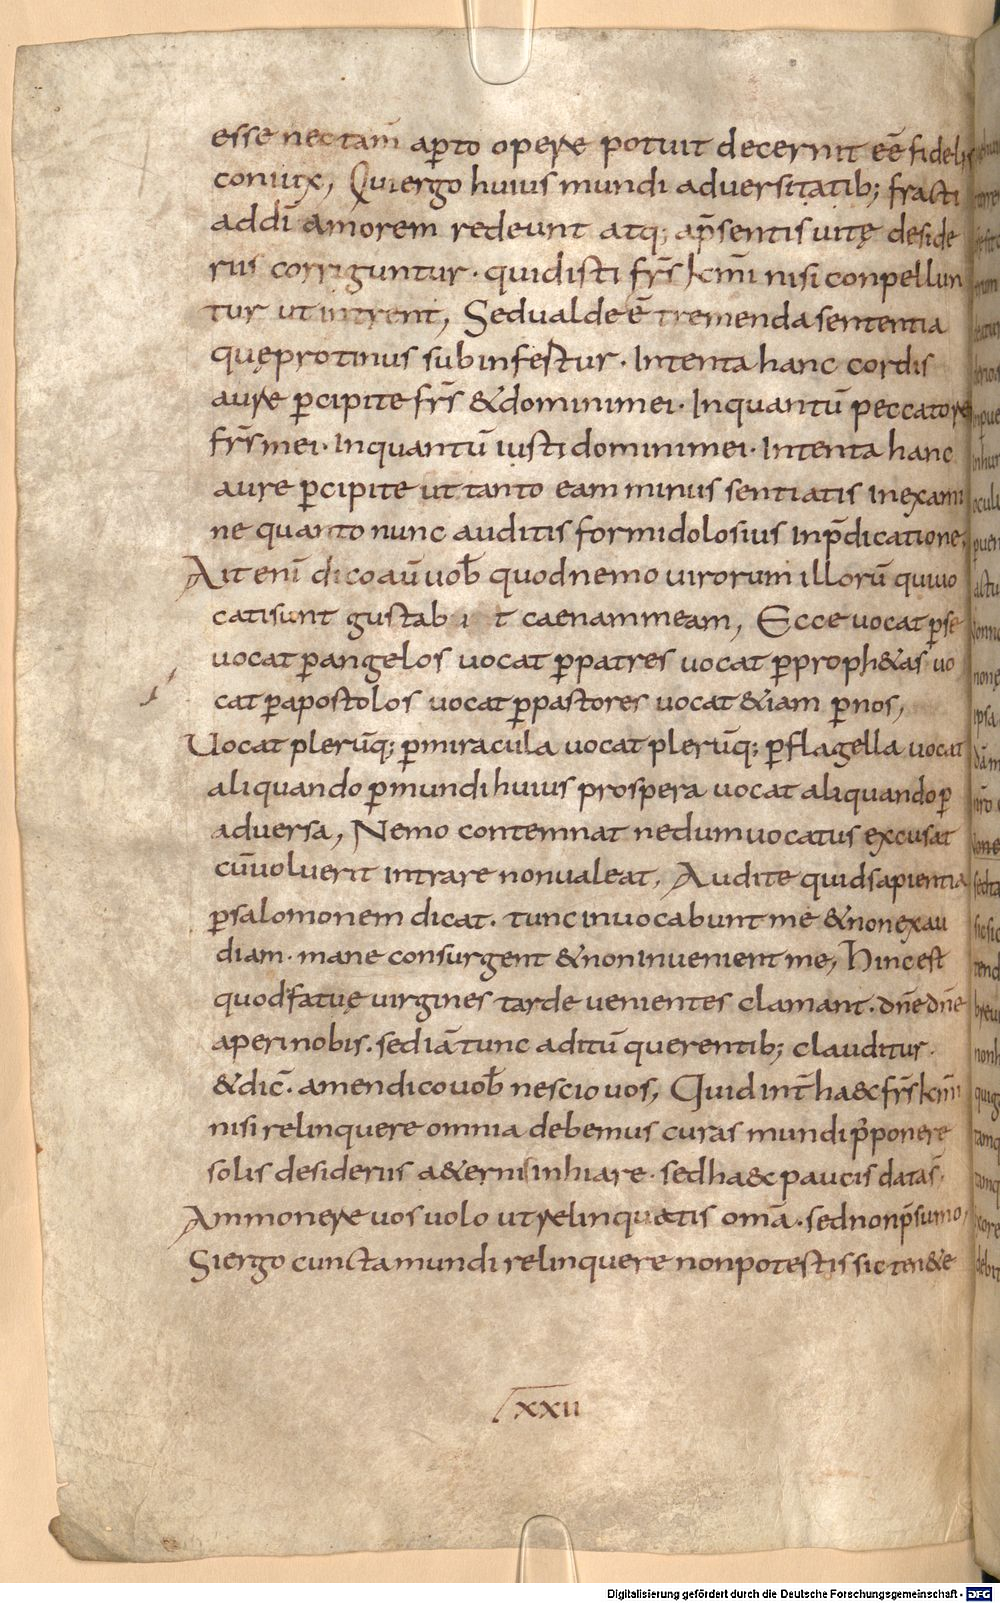 esse nec tam̄ aꝑto opere potuit decernit eē̄ fidelis
coniux, Qui ergo huius mundi aduersitatib; fracti
ad dī amorem redeunt atq; ap̄sentis uitę deside
riis corriguntur · quid isti fr̄s kmī nisi conpellun
tur ut intrent, Sed ualde ē tremenda sententia
quę protinus subinfestur · Intenta hanc cordis
aure ꝑcipite fr̄s & domini mei · Inquantū peccatores
fr̄s mei · Inquantū iusti domini mei · Intenta hanc
aure ꝑcipite ut tanto eam minus sentiatis in exami
ne quanto nunc auditis formidolosius in p̄dicatione,
Ait enī dico aū uob̄ quod nemo uirorum illorū qui uo
cati sunt gustab i t caenam meam, Ecce uocat ꝑ se
uocat ꝑ angelos uocat ꝑ patres uocat ꝑ proph&as uo
cat ꝑ apostolos uocat ꝑ pastores uocat &iam ꝑ nos,
Uocat plerūq; ꝑ miracula uocat plerūq; ꝑ flagella uocat
aliquando ꝑ mundi huius prospera uocat aliquando ꝑ
aduersa, Nemo contemnat ne dum uocatus excusat
cū uoluerit intrare non ualeat, Audite quid sapientia
ꝑ salomonem dicat · tunc inuocabunt me & non exau
diam · mane consurgent & non inuenient me, Hinc est
quod fatuę uirgines tarde uenientes clamant · dn̄e dn̄e
aperi nobis · sed iā tunc aditū querentib; clauditur ·
& dic̄ · amen dico uob̄ nescio uos, Quid int̄ ha&c fr̄s kmī
nisi relinquere omnia debemus curas mundi p̄ponere
solis desideriis a&ernis inhiare · sed ha&c paucis data s̄ ·
Ammonere uos uolo ut relinquatis omā · sed non p̄sumo,
Si ergo cuncta mundi relinquere non potestis sic ten&e
lxxii
Digitalisierung gefördert durch die Deutsche Forschungsgemeinschaft - DFG